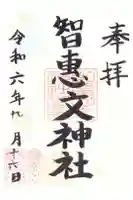 奉拝
智恵文神社
令和六年九月十六日